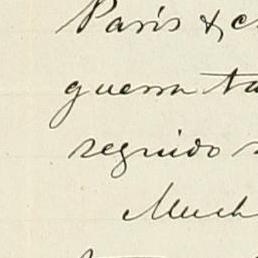 Paris & c
guerra ta
seguido s
Much